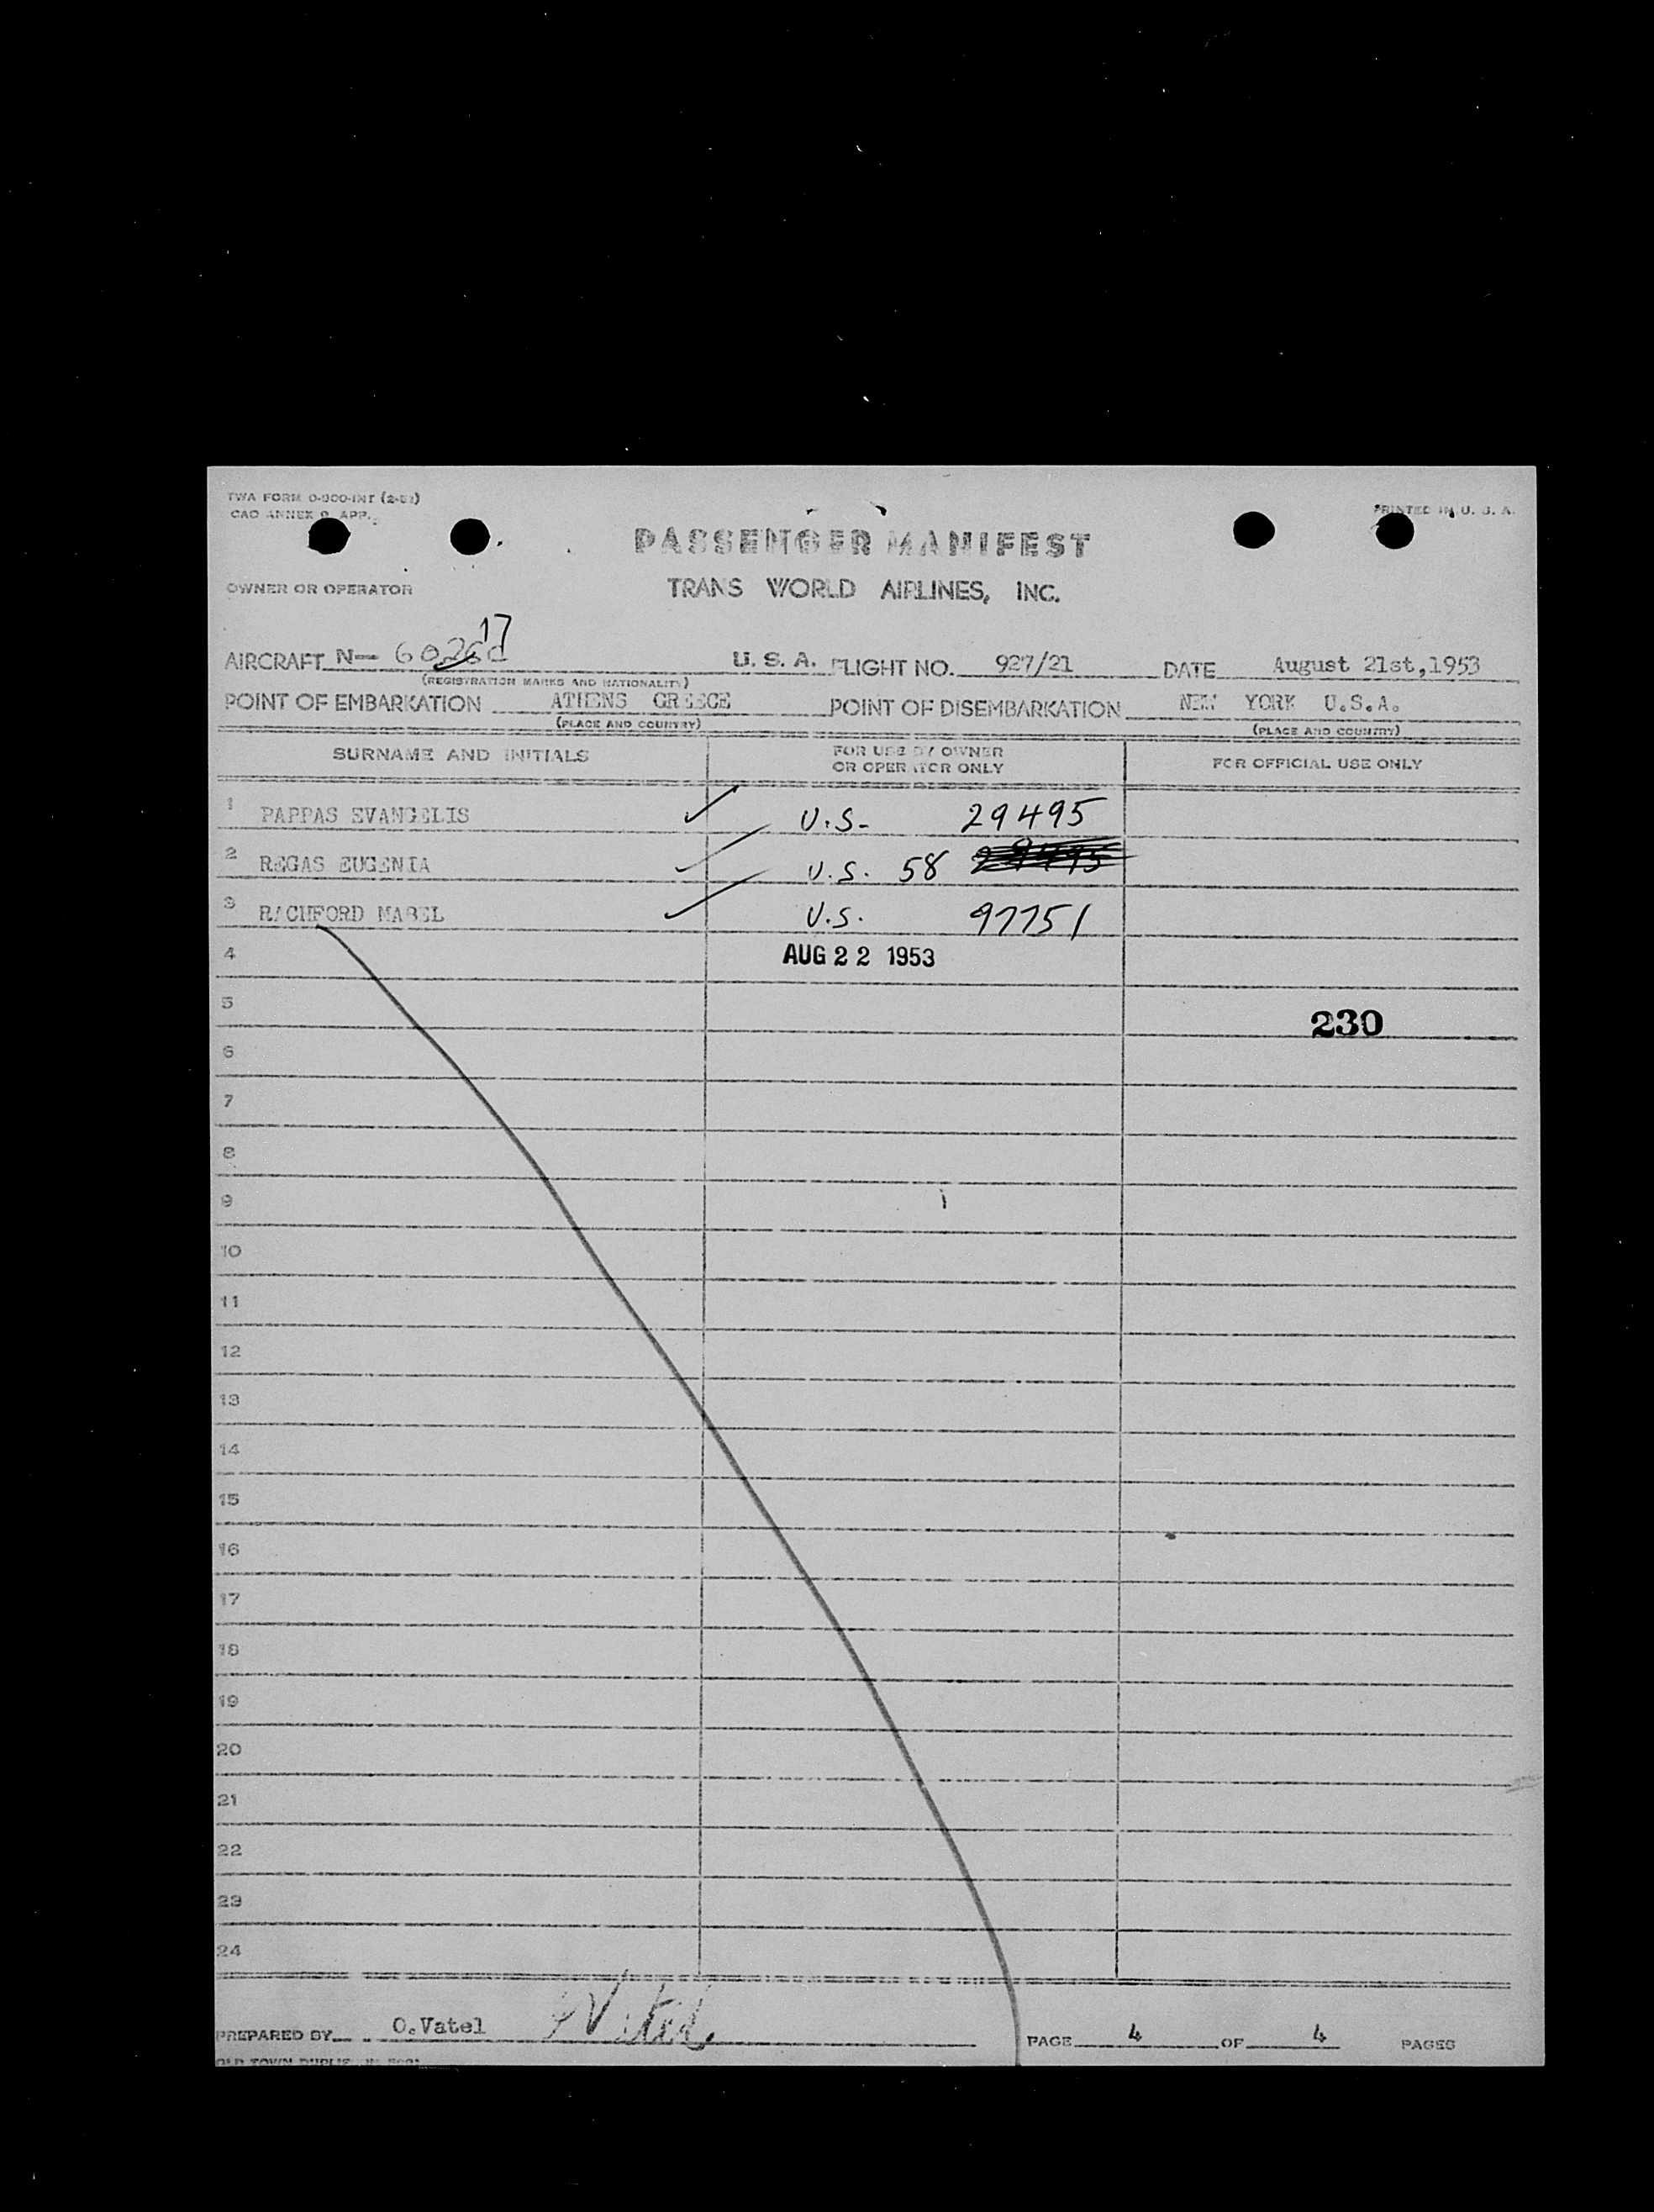 TWA FORM 0-900-INT
CAO ANNEX 9, APP.
PRINTED IN U. S. A.
PASSENGER MANIFEST
OWNER OR OPERATOR
TRANS WORLD AIRLINES, INC.
17
AIRCRAFT N— 6026C U. S. A. FLIGHT NO. 927/21 DATE August 21st,1953
(REGISTRATION MARKS AND NATIONALITY)
POINT OF EMBARKATION ATHENS GREECE POINT OF DISEMBARKATION NEW YORK U.S.A.
(PLACE AND COUNTRY) (PLACE AND COUNTRY)
SURNAME AND INITIALS FOR USE BY OWNER OR OPERATOR ONLY FOR OFFICIAL USE ONLY
1 PAPPAS EVANGELIS U.S. 29495
2 REGAS EUGENIA U.S. 58 29495
3 RACHFORD MABEL U.S. 97751
4 AUG 22 1953
5 230
6
7
8
9
10
11
12
13
14
15
16
17
18
19
20
21
22
23
24
PREPARED BY O.Vatel PAGE 4 OF 4 PAGES
OLD TOWN